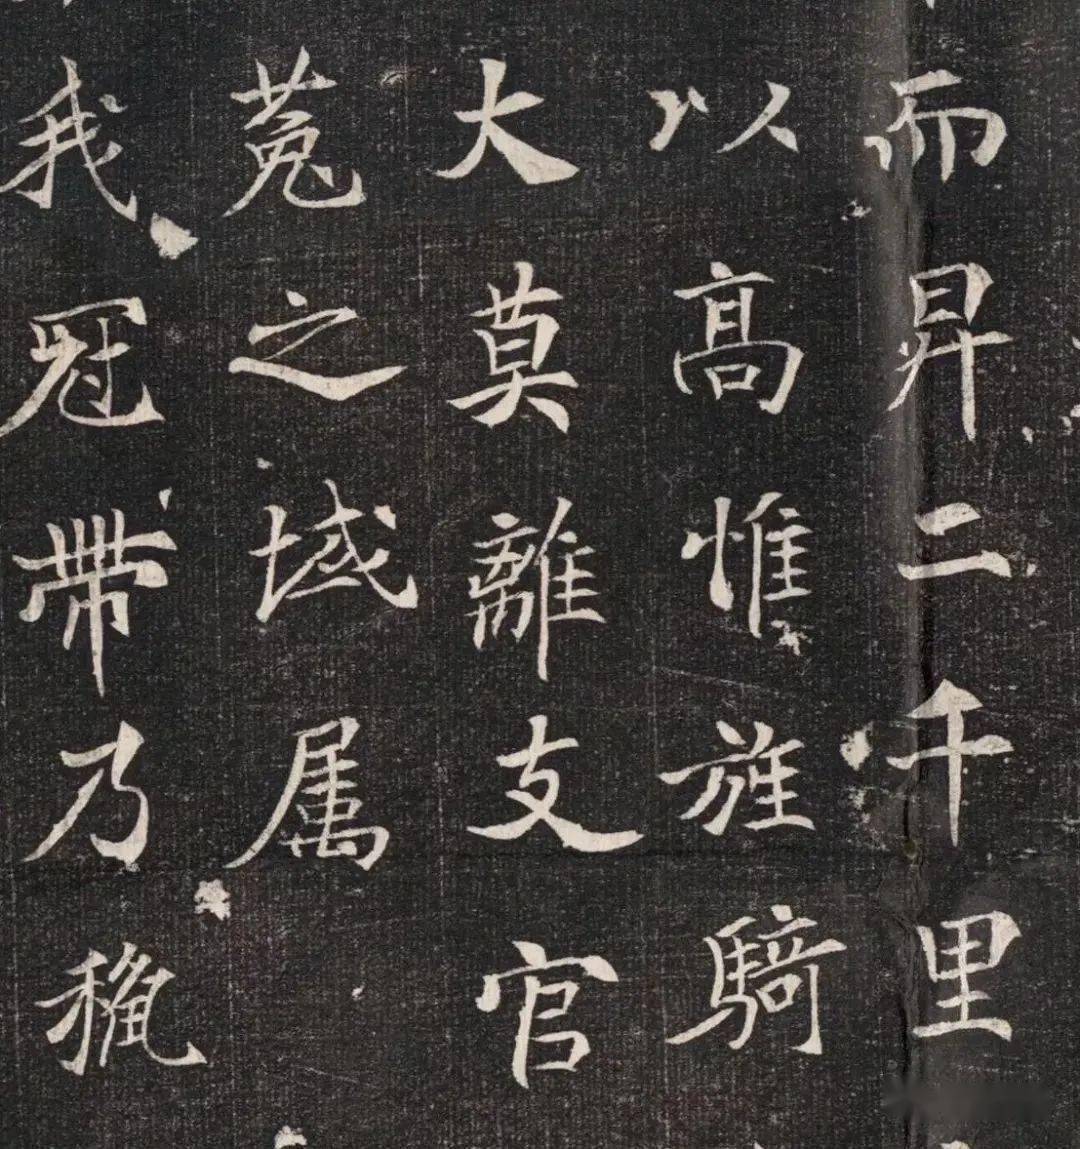 而昇二千里
以高惟旌騎
大莫離支官
菟之域属
我冠帶乃